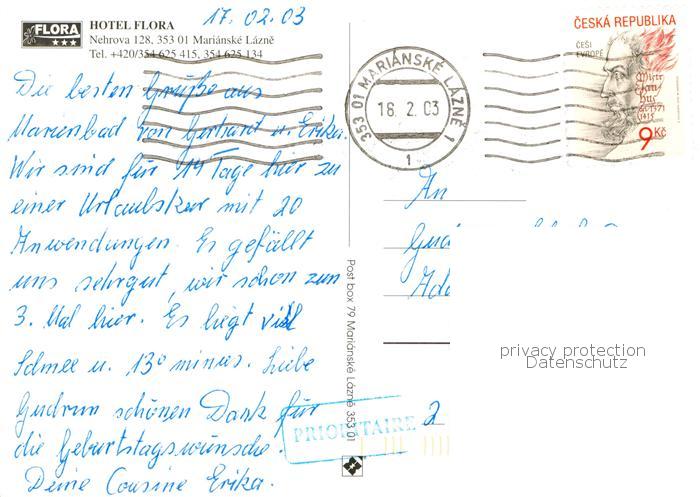 17.02.03
FLORA
HOTEL FLORA
Nehrova 128, 353 01 Mariánské Lázně
Tel. +420/354 625 415, 354 625 134
Die besten Grüße aus
Marienbad von Gerhard u. Erika.
Wir sind für 14 Tage hier zu
einer Urlaubskur mit 20
Anwendungen. Es gefällt
uns sehrgut, wir schon zum
3. Mal hier. Es liegt viel
Schnee u. 13° minus. Liebe
Gudrun schönen Dank für
die Geburtstagswünsche.
Deine Cousine Erika.
Post box 79 Mariánské Lázně 353 01
353 01 MARIÁNSKÉ LÁZNĚ 1
18.2.03
1
ČESKÁ REPUBLIKA
ČEŠI
EVROPĚ
Mistr
Jan
Hus
1371
1415
9 Kč
An
PRIORITAIRE
2
privacy protection
Datenschutz